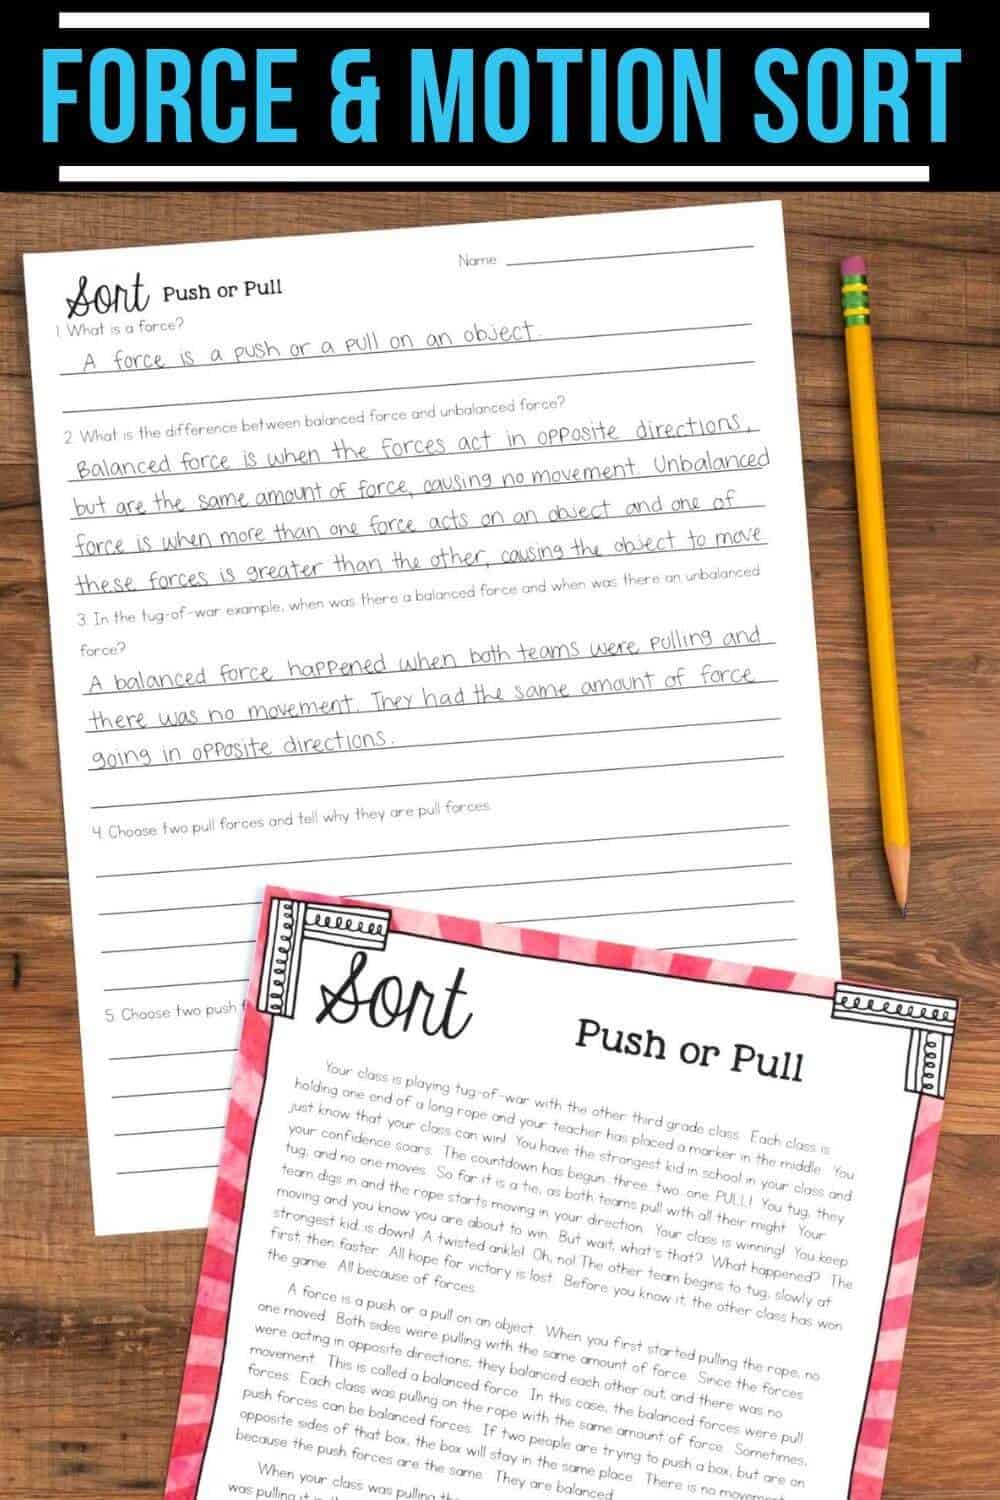 FORCE & MOTION SORT
Name:
Sort Push or Pull
1. What is a force?
A force is a push or a pull on an object.
2. What is the difference between balanced force and unbalanced force?
Balanced force is when the forces act in opposite directions,
but are the same amount of force, causing no movement. Unbalanced
force is when more than one force acts on an object and one of
these forces is greater than the other, causing the object to move
3. In the tug-of-war example, when was there a balanced force and when was there an unbalanced
force?
A balanced force happened when both teams were pulling and
there was no movement. They had the same amount of force
going in opposite directions.
4. Choose two pull forces and tell why they are pull forces.
5. Choose two push
Sort Push or Pull
Your class is playing tug-of-war with the other third grade class. Each class is
holding one end of a long rope and your teacher has placed a marker in the middle. You
just know that your class can win! You have the strongest kid in school in your class and
your confidence soars. The countdown has begun...three...two...one...PULL! You tug, they
tug, and no one moves. So far it is a tie, as both teams pull with all their might. Your
team digs in and the rope starts moving in your direction. Your class is winning! You keep
moving and you know you are about to win. But wait, what's that? What happened? The
strongest kid...is down! A twisted ankle! Oh, no! The other team begins to tug, slowly at
first, then faster. All hope for victory is lost. Before you know it, the other class has won
the game. All because of forces.
A force is a push or a pull on an object. When you first started pulling the rope, no
one moved. Both sides were pulling with the same amount of force. Since the forces
were acting in opposite directions, they balanced each other out, and there was no
movement. This is called a balanced force. In this case, the balanced forces were pull
forces. Each class was pulling on the rope with the same amount of force. Sometimes,
push forces can be balanced forces. If two people are trying to push a box, but are on
opposite sides of that box, the box will stay in the same place. There is no movement
because the push forces are the same. They are balanced.
When your class was pulling
was pulling it in